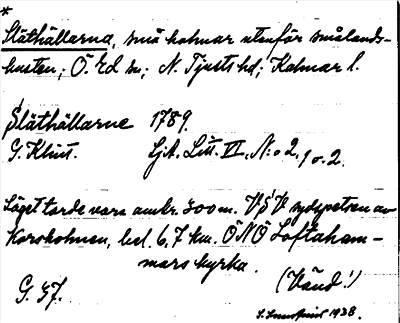 *
Släthällarna, små holmar utanför smålands-
kusten; Ö. Ed sn; N. Tjusts hd; Kalmar l.
Släthällarne 1789.
G. Klint. Sjk. Litt. VI. N:o 2. 1 o. 2.
Läget torde vara omkr. 300 m. VSV sydspetsen av
Korsholmen, bel. 6,7 km. ÖNÖ Loftaham-
mars kyrka.
(Vänd!)
G. 57.
1938.